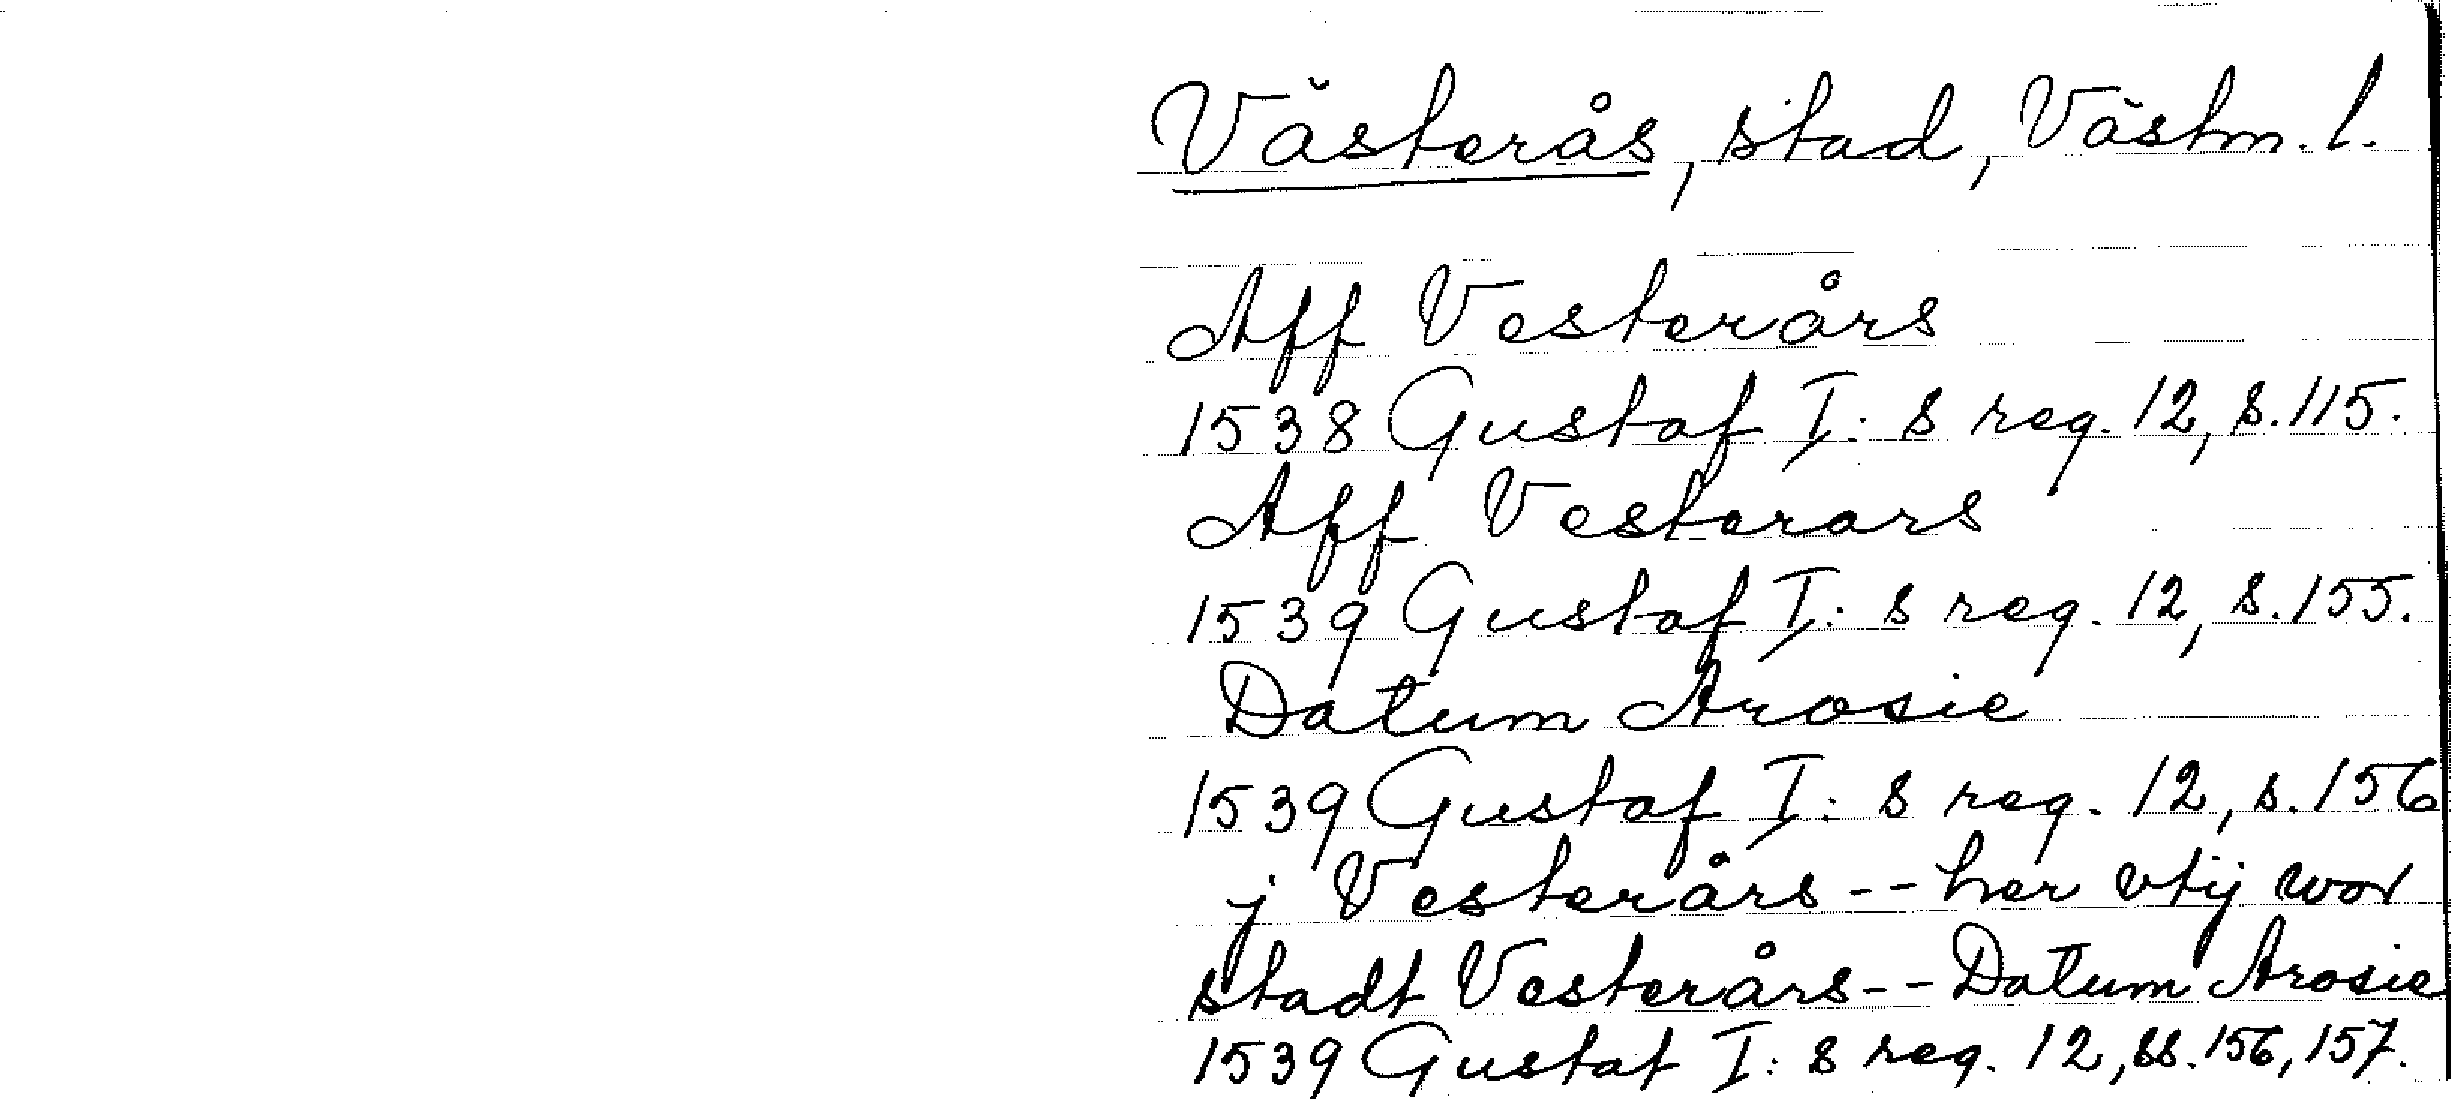 Västerås, stad, Västm. l.
Aff Vesterårs
1538 Gustaf I: s reg. 12, s. 115.
Aff Vesterars
1539 Gustaf I: s reg. 12, s. 155.
Datum Arosie
1539 Gustaf I: s reg. 12, s. 156
j Vesterårs -- her vtij wor
stadt Vesterårs -- Datum Arosie
1539 Gustaf I: s reg. 12, ss. 156, 157.